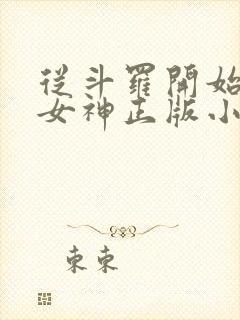 從斗羅開始
女神正版小
束束